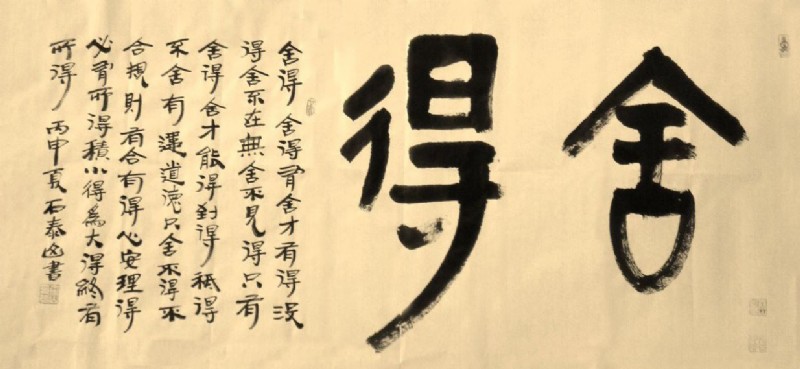 舍得
舍得舍得有舍才有得没
得舍不在無舍不見得只有
舍得舍才能得到得祗得
不舍有違道德只舍不得不
合規則有舍有得心安理得
必有所得積小得為大得終有
所得 丙申夏石泰山書